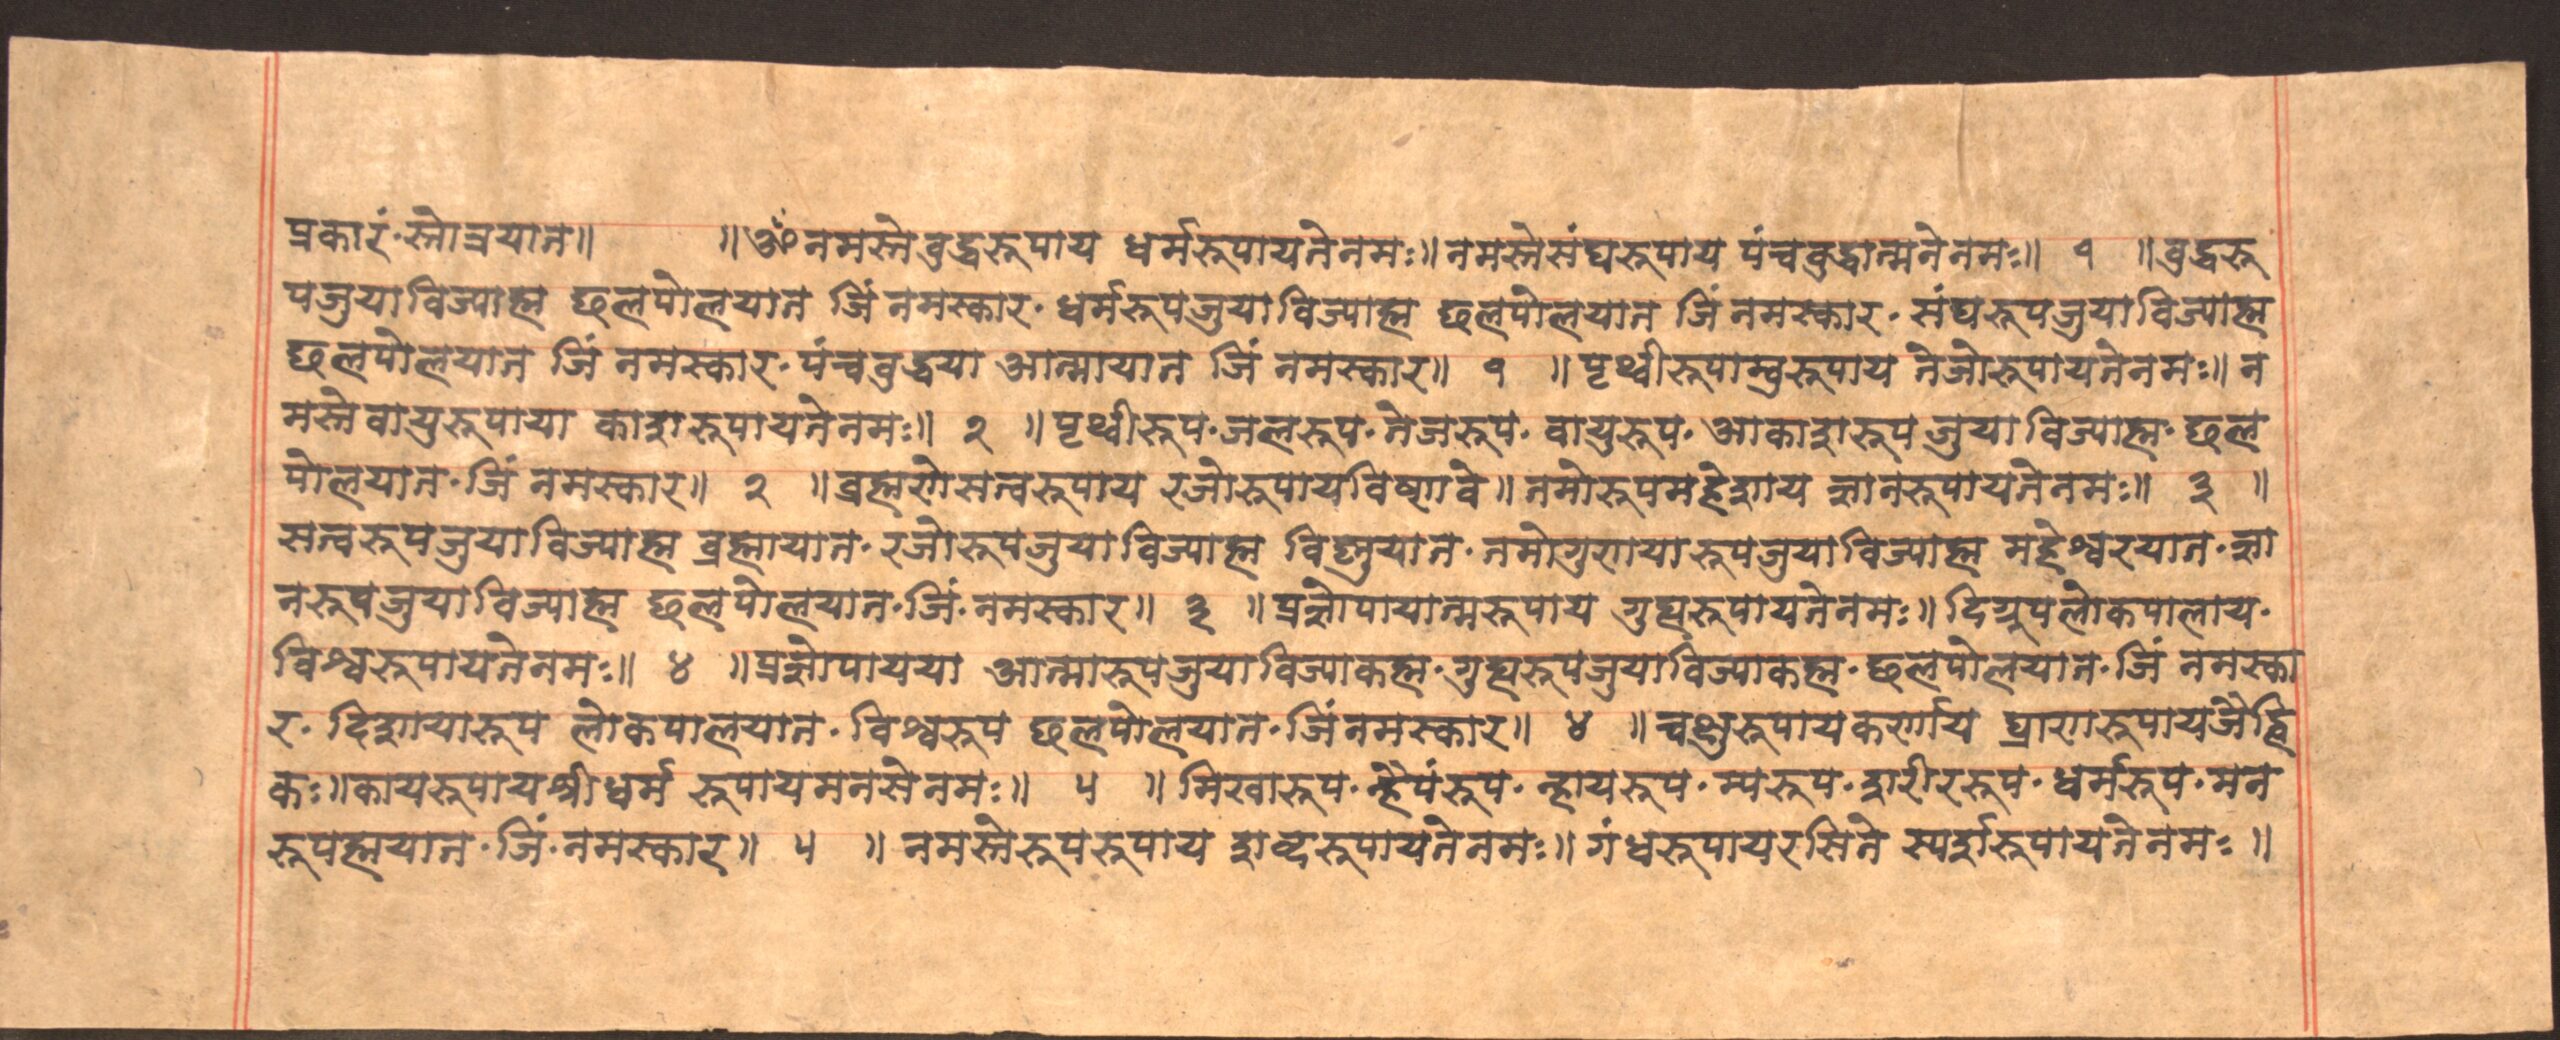 प्रकारं·स्तोत्रयात॥ ॥ॐ नमस्ते वुद्धरूपाय धर्मरूपायतेनमः॥नमस्तेसंघरूपाय पंच्ववुद्धात्मनेनमः॥ १ ॥वुद्धरू
पजुयाविज्याह्म छलपोलयात जिं नमस्कार· धर्मरूपजुयाविज्याह्म छलपोलयात जिं नमस्कार· संघरूपजुयाविज्याह्म
छलपोलयात जिं नमस्कार·पंच्ववुद्धया आत्मायात जिं नमस्कार॥ १ ॥पृथ्वीरूपाम्वुरूपाय तेजोरूपायतेनमः॥ न
मस्ते वायुरूपाया काशरूपायतेनमः॥ २ ॥पृथ्वीरूप·जलरूप·तेजरूप· वायुरूप·आकाशरूपजुयाविज्याह्म·छल
पोलयात·जिं नमस्कार॥ २ ॥व्रह्मणेसत्वरूपाय रजोरूपायविष्णवे॥तमोरूपमहेशाय ज्ञानरूपायतेनमः॥ ३ ॥
सत्वरूपजुयाविज्याह्म व्रह्मायात·रजोरूपजुयाविज्याह्म विष्णुयात·तमोगुणयारूपजुयाविज्याह्म महेश्वरयात·ज्ञा
नरूपजुयाविज्याह्म छलपोलयात·जिं·नमस्कार॥ ३ ॥प्रज्ञोपायात्मरूपाय गुह्यरूपायतेनमः॥दिग्रूपलोकपालाय·
विश्वरूपायतेनमः॥ ४ ॥प्रज्ञोपायया आत्मारूपजुयाविज्याकह्म·गुह्यरूपजुयाविज्याकह्म·छलपोलयात·जिं नमस्का
र· दिशायारूप लोकपालयात·विश्वरूप छलपोलयात·जिंनमस्कार॥ ४ ॥च्वक्षुरूपायकर्णाय घ्राणरूपायजैह्वि
कः॥कायरूपायश्रीधर्म रूपायमनसेनमः॥ ५ ॥मिखारूप·न्हैपंरूप·न्हायरूप·म्यरूप·शरीररूप·धर्मरूप·मन
रूपह्मयात·जिं·नमस्कार॥ ५ ॥नमस्तेरूपरूपाय शव्दरूपायतेनमः॥गंधरूपायरसिने स्पर्शरूपायतेनमः॥